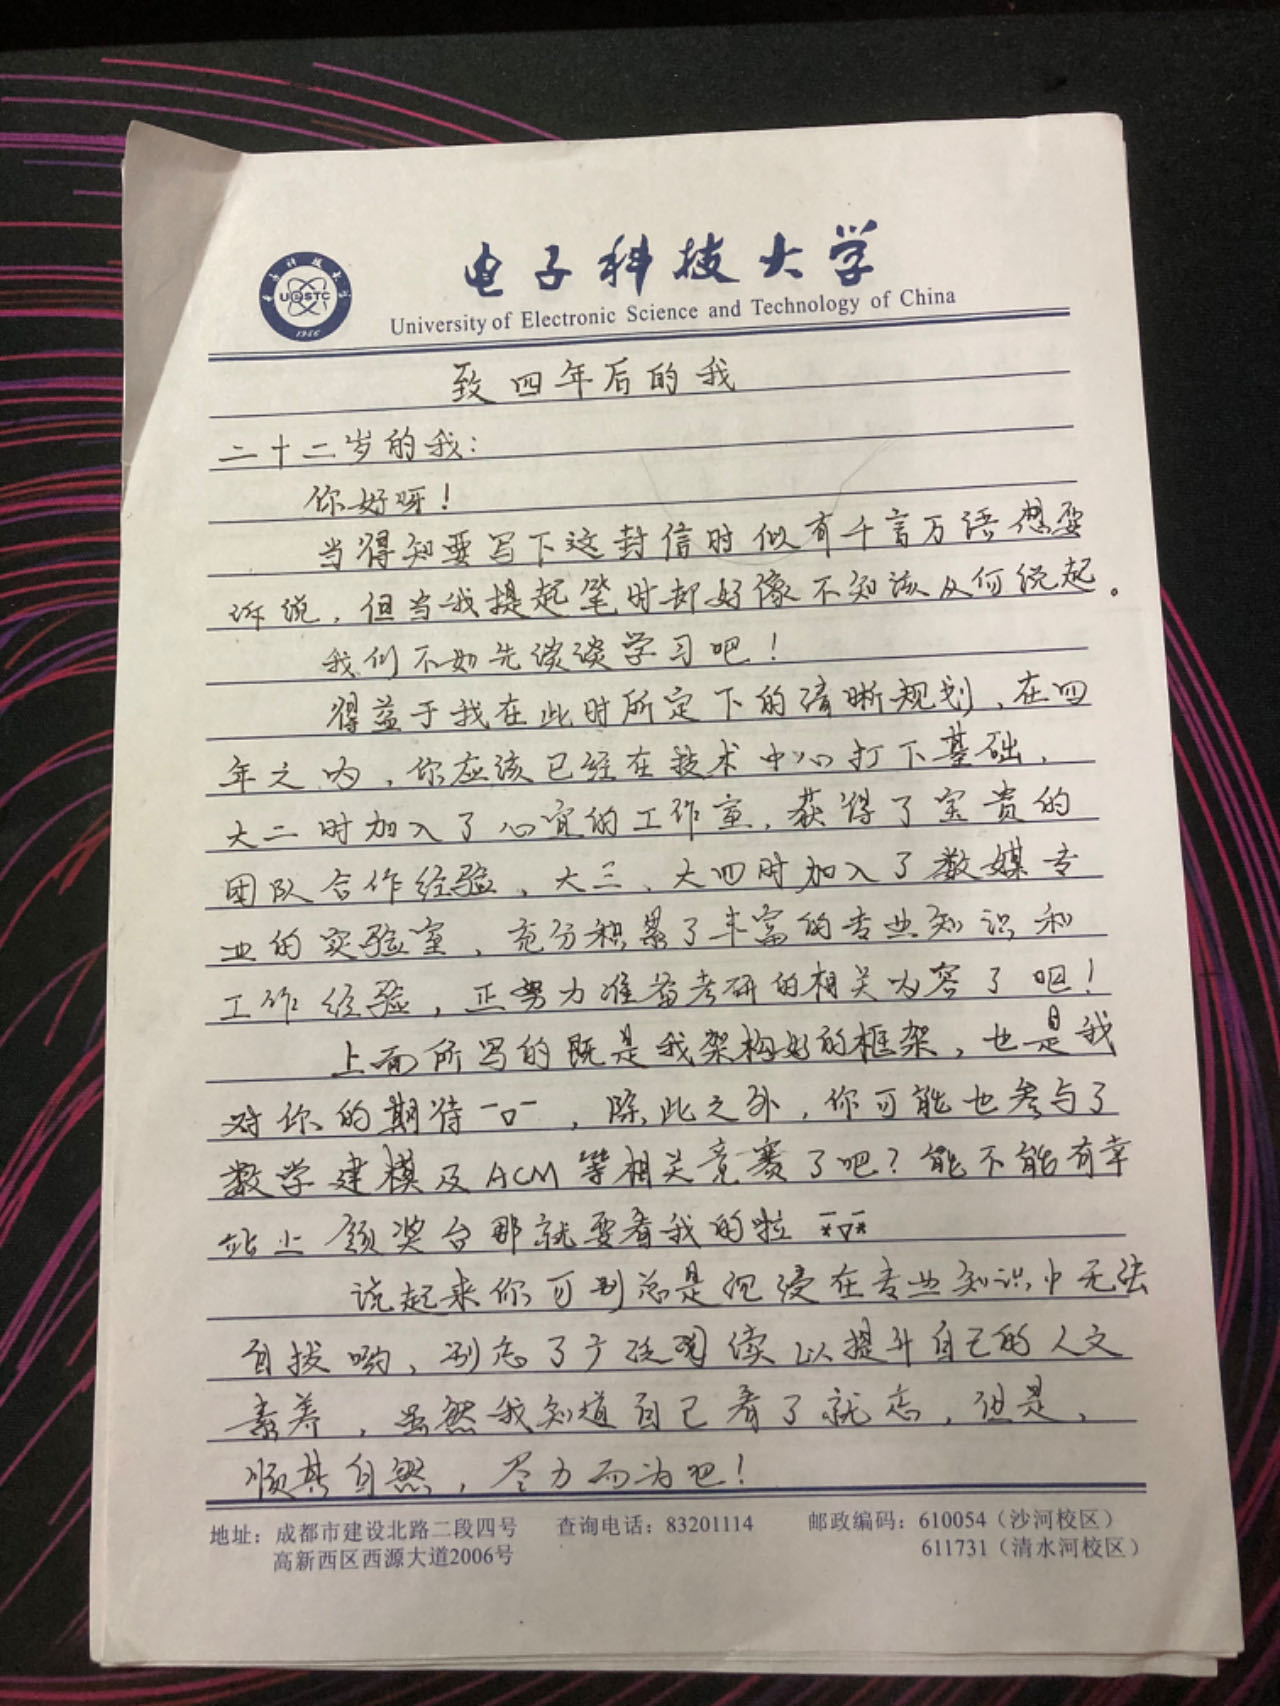 电子科技大学
UESTC
1956
University of Electronic Science and Technology of China
致四年后的我
二十二岁的我:
你好呀!
当得知要写下这封信时似有千言万语想要
诉说,但当我提起笔时却好像不知该从何说起。
我们不如先谈谈学习吧!
得益于我在此时所定下的清晰规划,在四
年之内,你应该已经在技术中心打下基础,
大二时加入了心宜的工作室,获得了宝贵的
团队合作经验,大三、大四时加入了数媒专
业的实验室,充分积累了丰富的专业知识和
工作经验,正努力准备考研的相关内容了吧!
上面所写的既是我架构好的框架,也是我
对你的期待ˉ□ˉ,除此之外,你可能也参与了
数学建模及ACM等相关竞赛了吧?能不能有幸
站上领奖台那就要看我的啦 *ˉ▽ˉ*
说起来你可别总是沉浸在专业知识中无法
自拔哟,别忘了广泛阅读以提升自己的人文
素养,虽然我知道自己看了就忘,但是,
顺其自然,尽力而为吧!
地址:成都市建设北路二段四号 查询电话:83201114 邮政编码:610054(沙河校区)
高新西区西源大道2006号 611731(清水河校区)